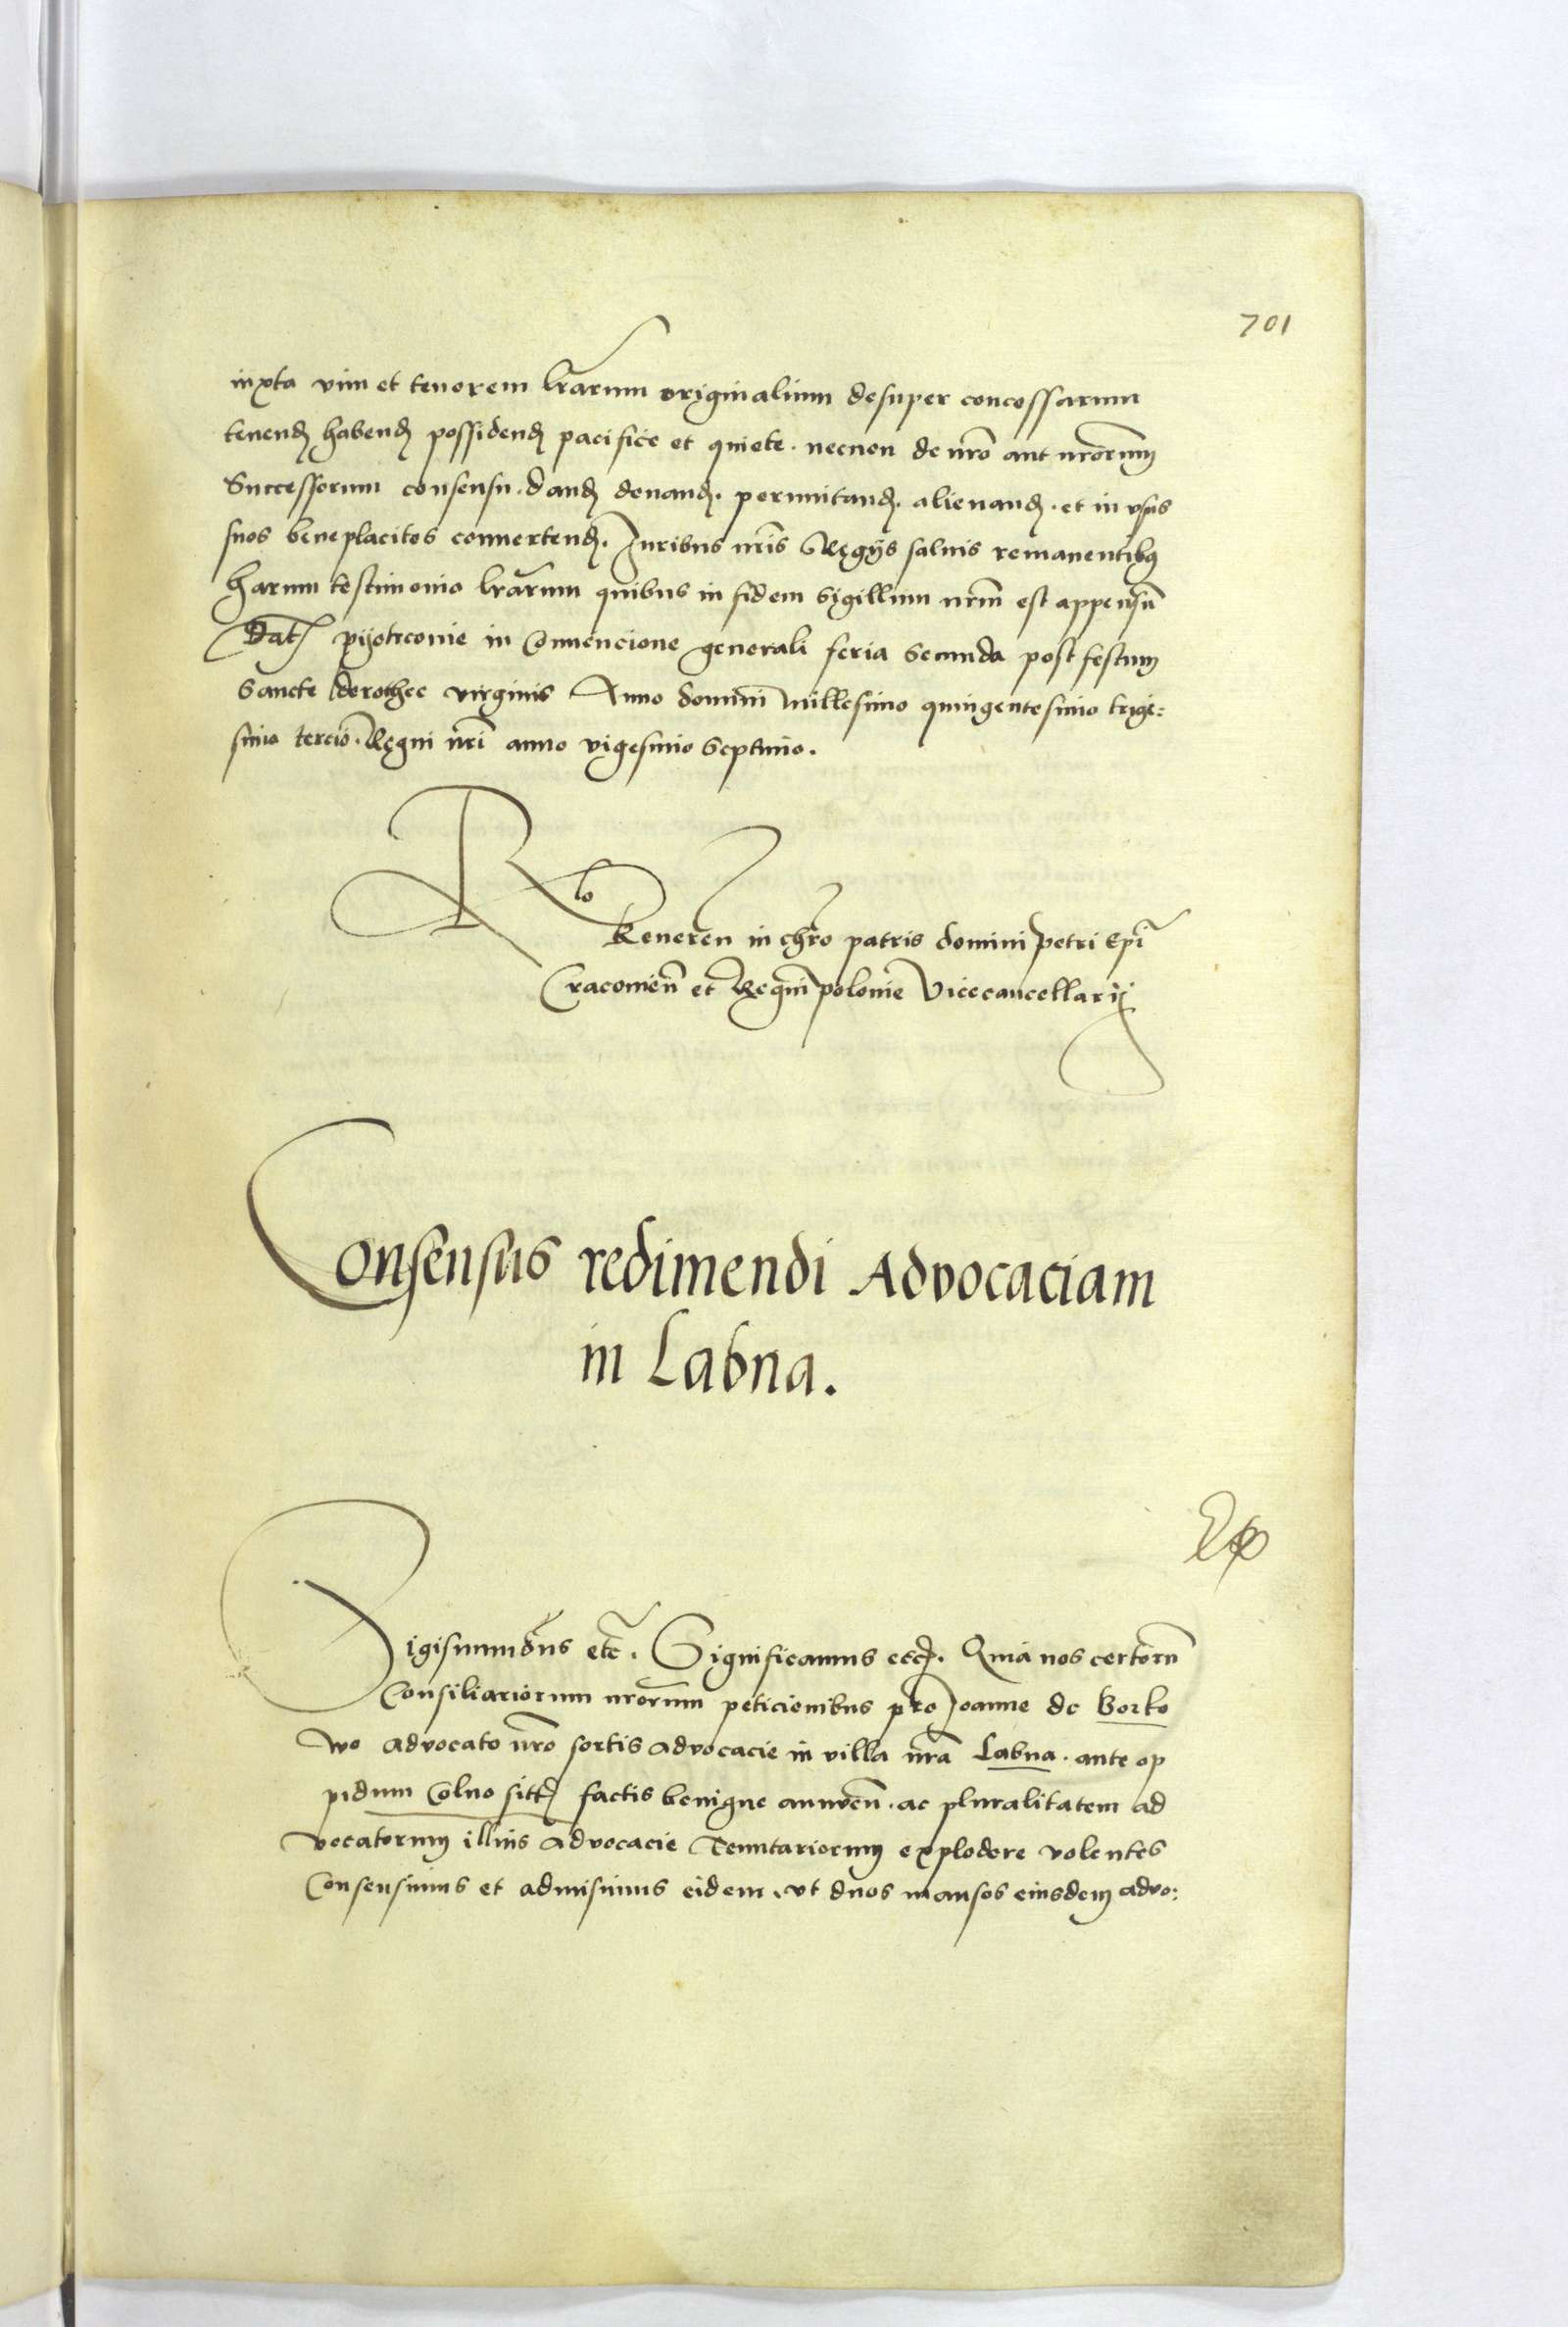 701
iuxta vim et tenorem lrarum originalium desuper concessarum
tenend habend possidend pacifice et quiete. necnon de nro aut nrorum
Successorum consensu. dand donand. permutand. alienand. et in vsus
suos beneplacitos conuertend. Iuribus nris Regijs saluis remanentibus
harum testimonio lrarum quibus in fidem Sigillum nrum est appensu
Dat pijotrconie in Conuencione generali feria Secunda post festum
Sancte dorothee virginis Anno domini Millesimo quingentesimo trige:
simo tercio. Regni nri anno vigesimo Septimo.
Rlo
Reueren in chro patris domini Petri Epi
Cracouien et Regni polonie Vicecancellarij
Consensus redimendi Advocaciam
in Labna.
Sigismundus etc. Significamus etc. Quia nos certoru
Consiliariorum nrorum peticionibus pro Joanne de Borko
wo advocato nro sortis advocacie in villa nra Labna. ante op
pidum Colno sitt factis benigne annuen. ac pluralitatem ad
vocatorum illius advocacie Tenutariorum explodere volentes
Consensimus et admisimus eidem. vt duos mansos eiusdem advo: